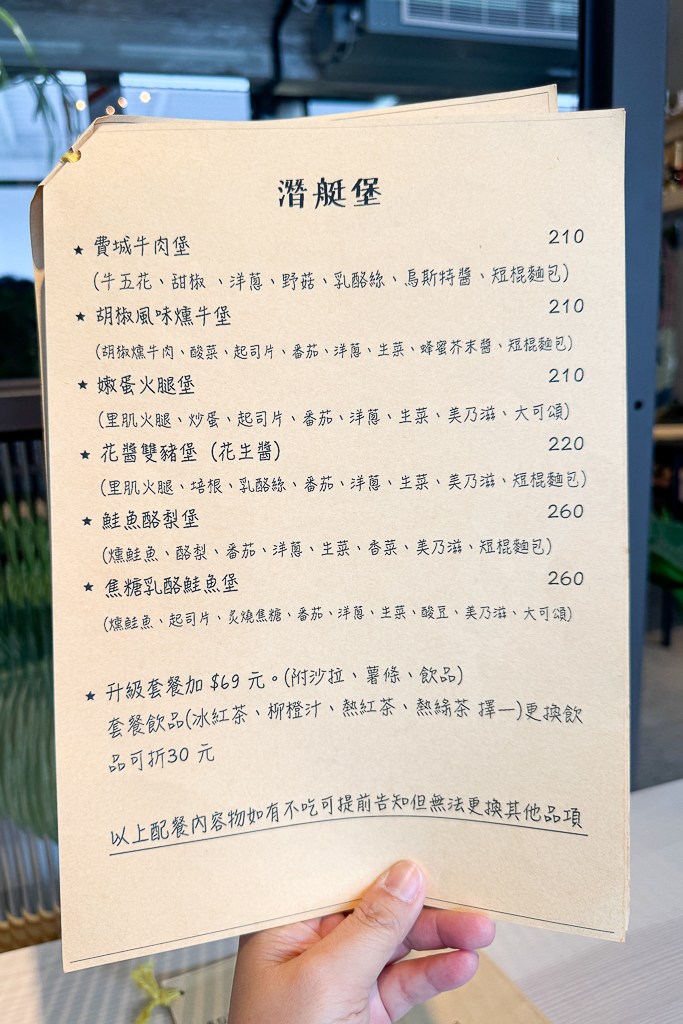 潛艇堡
★ 費城牛肉堡 210
(牛五花、甜椒、洋蔥、野菇、乳酪絲、烏斯特醬、短棍麵包)
★ 胡椒風味燻牛堡 210
(胡椒燻牛肉、酸菜、起司片、番茄、洋蔥、生菜、蜂蜜芥末醬、短棍麵包)
★ 嫩蛋火腿堡 210
(里肌火腿、炒蛋、起司片、番茄、洋蔥、生菜、美乃滋、大可頌)
★ 花醬雙豬堡 (花生醬) 220
(里肌火腿、培根、乳酪絲、番茄、洋蔥、生菜、美乃滋、短棍麵包)
★ 鮭魚酪梨堡 260
(燻鮭魚、酪梨、番茄、洋蔥、生菜、香菜、美乃滋、短棍麵包)
★ 焦糖乳酪鮭魚堡 260
(燻鮭魚、起司片、炙燒焦糖、番茄、洋蔥、生菜、酸豆、美乃滋、大可頌)
★ 升級套餐加 $69 元。(附沙拉、薯條、飲品)
套餐飲品(冰紅茶、柳橙汁、熱紅茶、熱綠茶 擇一)更換飲
品可折30 元
以上配餐內容物如有不吃可提前告知但無法更換其他品項